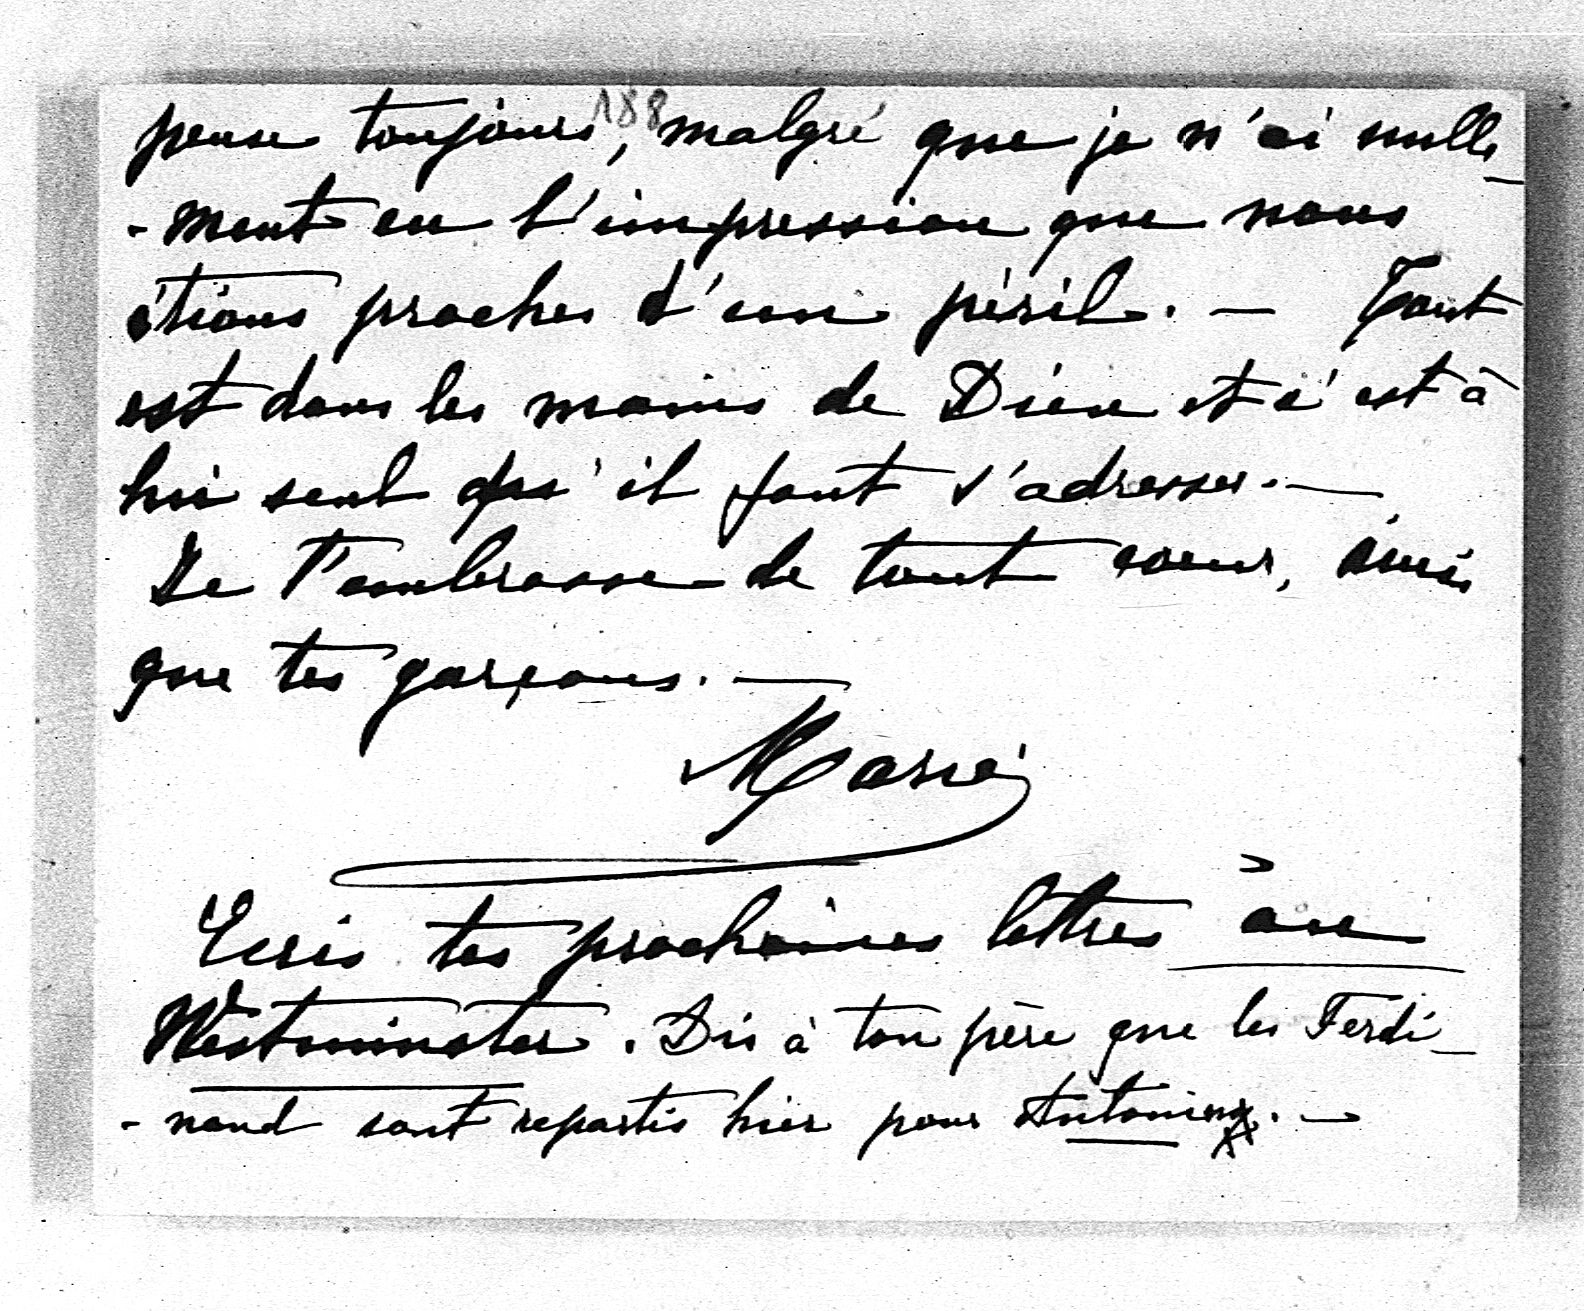 188
pense toujours, malgré que je n'ai nulle
-ment eu l'impression que nous
étions proches d'un péril. — Tout
est dans les mains de Dieu et c'est à
lui seul qu'il faut s'adresser. —
Je t'embrasse de tout coeur, ainsi
que tes garçons. —
Marie
Ecris tes prochaines lettres au
Westminster. Dis à ton père que les Ferdi-
-nand sont repartis hier pour Antoniny. —